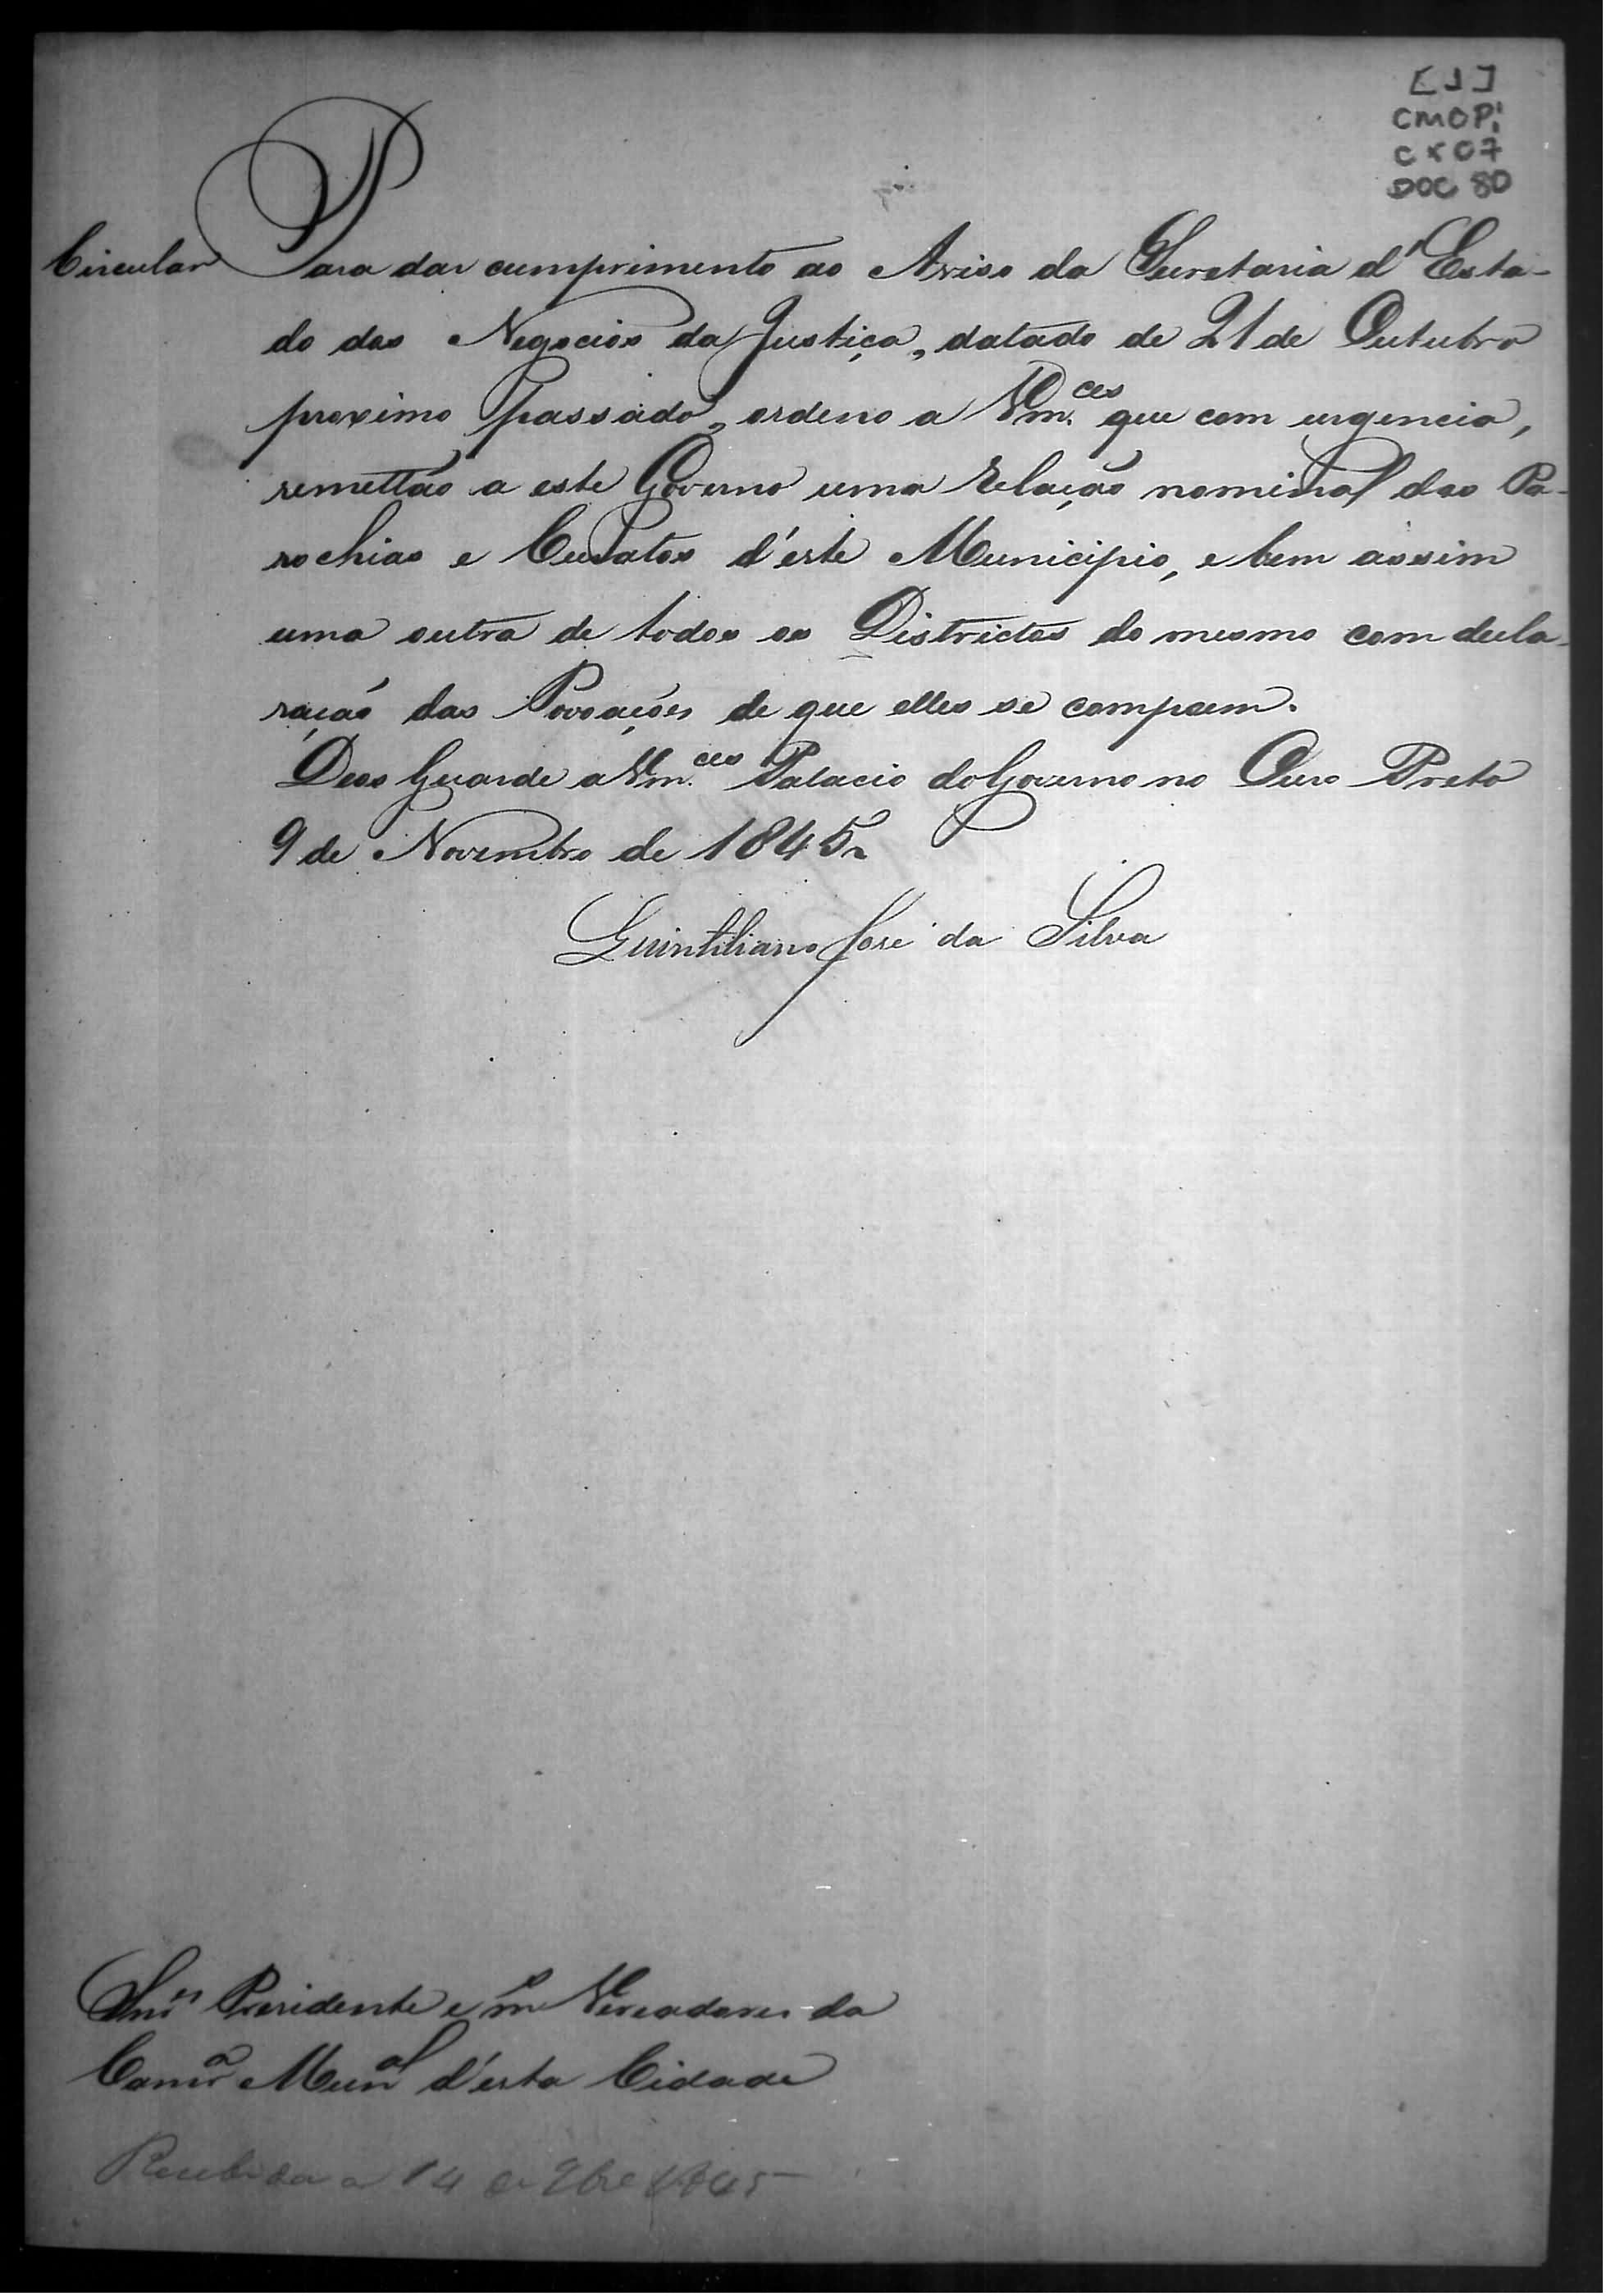 [1]
CMOPi
CX07
DOC 80
Circular Para dar cumprimento ao Aviso da Secretaria d'Esta-
do dos Negocios da Justiça, datado de 21 de Outubro
proximo passado, ordeno a Vm.ces que com urgencia,
remettão a este Governo uma relação nominal das Pa-
rochias e Curatos d'este Municipio, e bem assim
uma outra de todos os Districtos do mesmo com decla-
ração das Povoações de que elles se compoem.
Deos Guarde a Vm.ces Palacio do Governo no Ouro Preto
9 de Novembro de 1845
Quintiliano José da Silva
Snrs Presidente e m Vereadores da
Camra Munal d'esta Cidade
Recebida a 14 de 9bro 1845